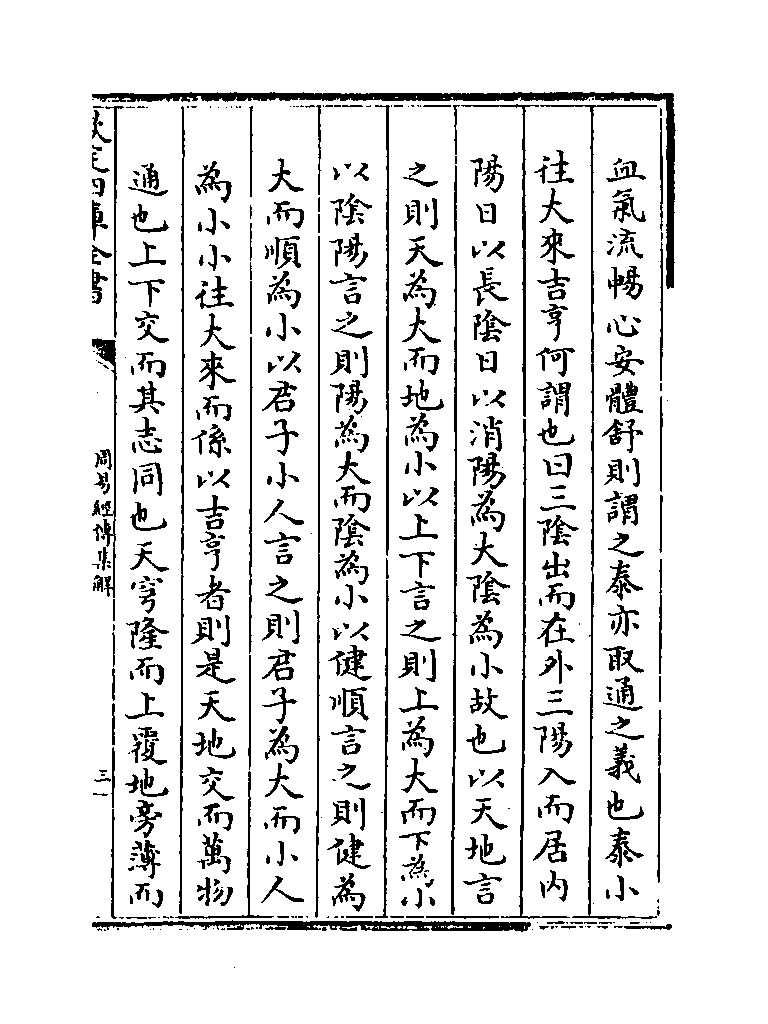 血氣流暢心安體舒則謂之泰亦取通之義也泰小
往大來吉亨何謂也曰三陰出而在外三陽入而居内
陽日以長陰日以消陽為大陰為小故也以天地言
之則天為大而地為小以上下言之則上為大而下為小
以陰陽言之則陽為大而陰為小以健順言之則健為
大而順為小以君子小人言之則君子為大而小人
為小小往大來而係以吉亨者則是天地交而萬物
通也上下交而其志同也天穹隆而上覆地旁薄而
欽定四庫全書
周易經傳集解
三